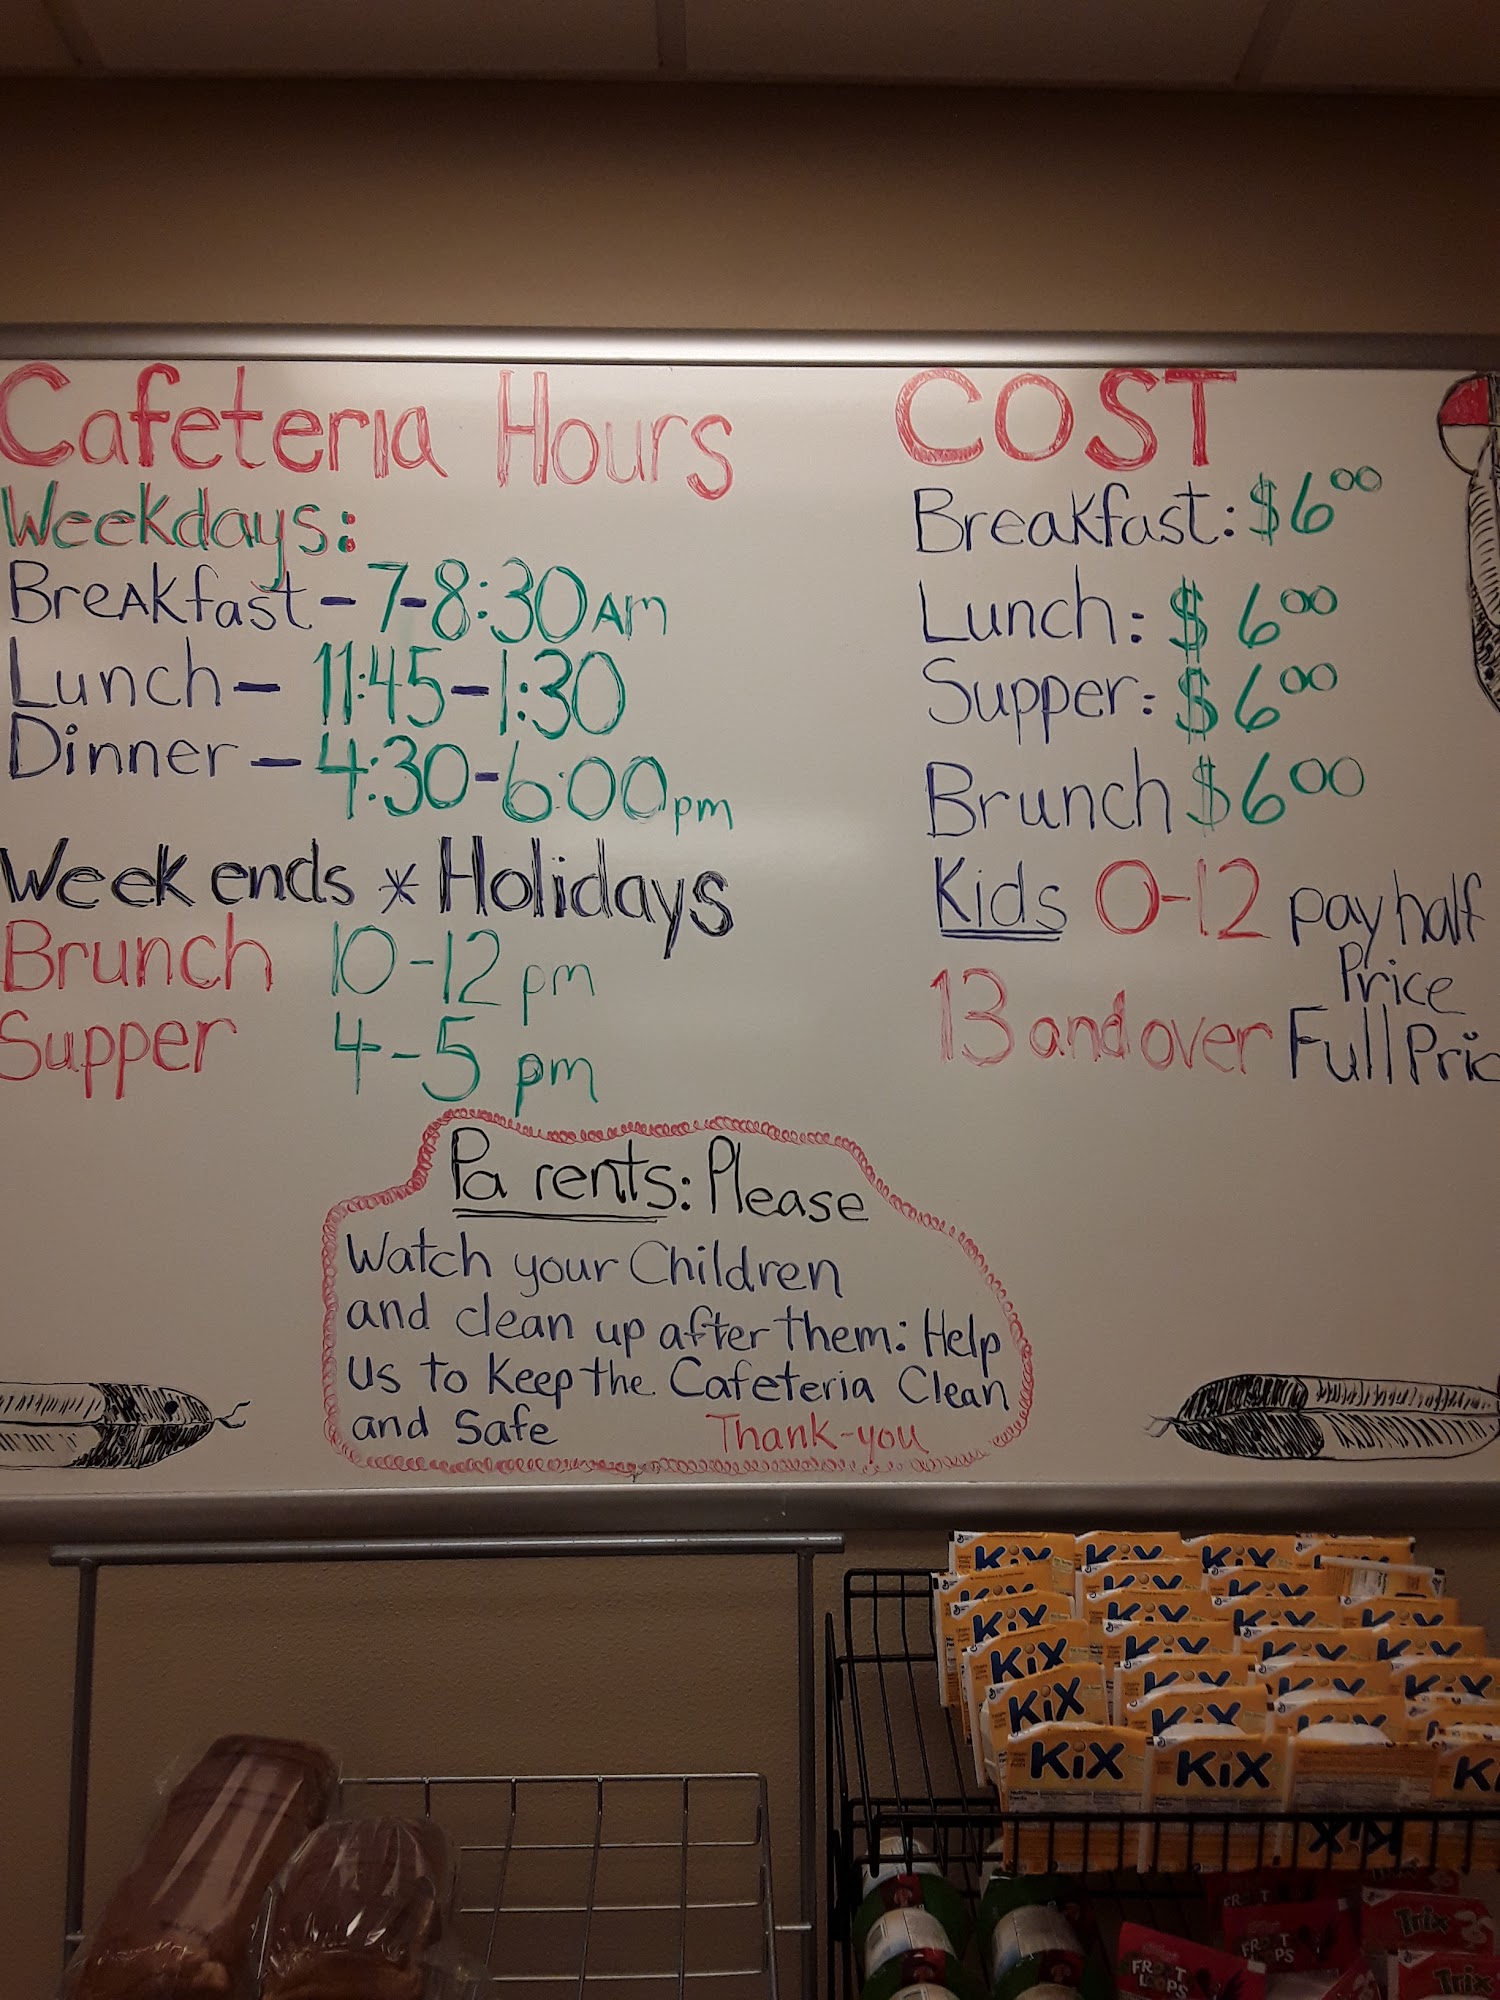 Cafeteria Hours
Weekdays:
Breakfast - 7-8:30 AM
Lunch - 11:45 - 1:30
Dinner - 4:30-6:00 pm
Weekends * Holidays
Brunch 10-12 pm
Supper 4-5 pm
COST
Breakfast: $6.00
Lunch: $6.00
Supper: $6.00
Brunch $6.00
Kids 0-12 pay half
Price
13 and over Full Pric
Parents: Please
Watch your Children
and clean up after them: Help
us to keep the Cafeteria Clean
and Safe Thank-you
KiX KiX KiX
KiX
KiX
KiX
KiX KiX
KiX
FROOT LOOPS
FROOT
LOOPS
Trix
Trix